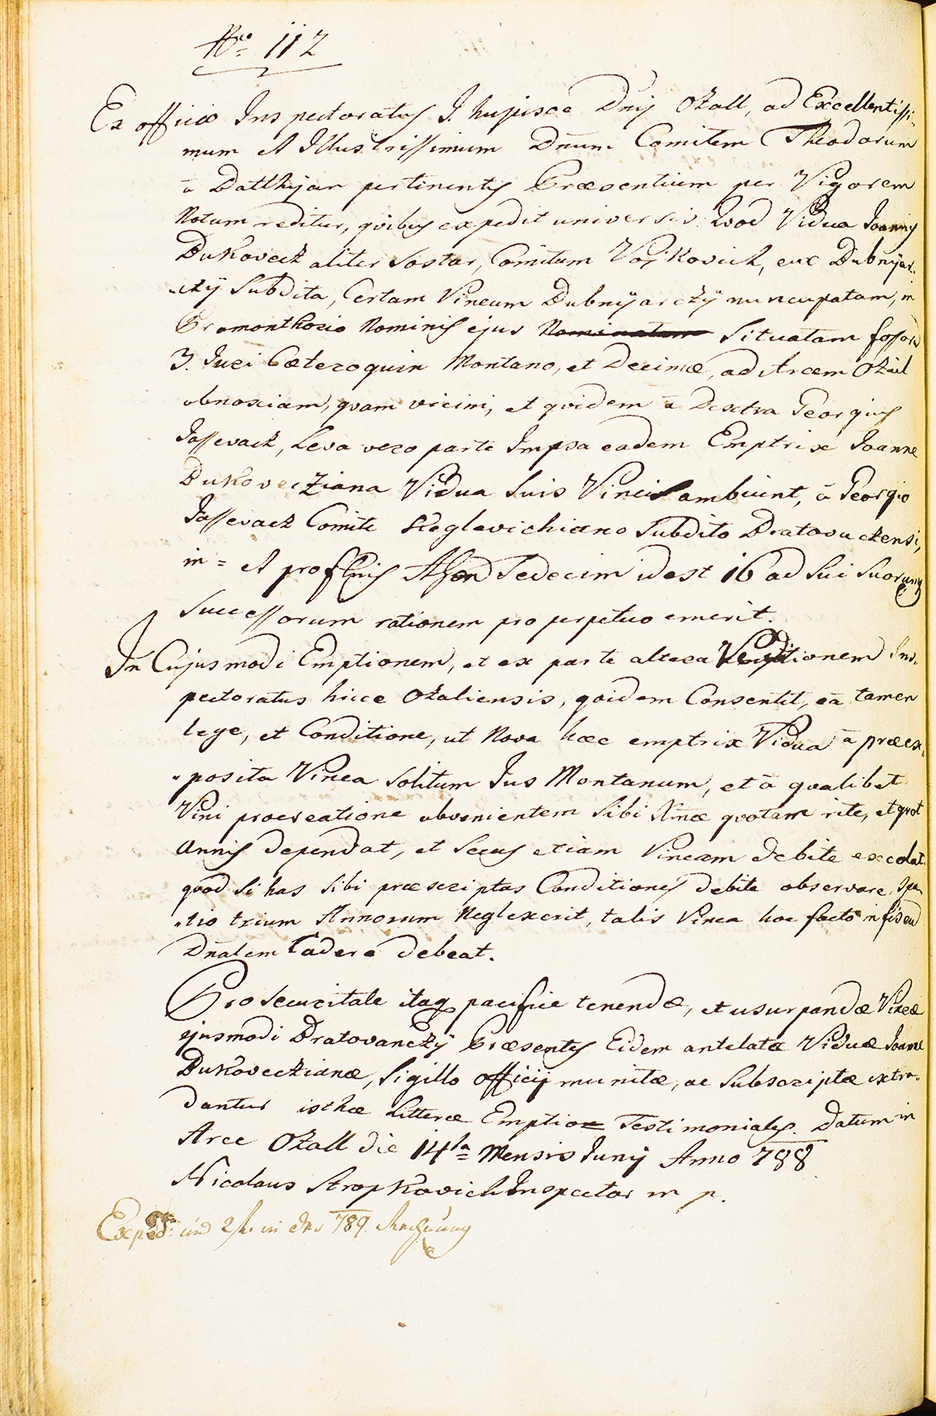 Nro. 112
Ex officio Inspectoratus I. hujusce Dnij Ozall, ad Excellentissi-
mum et Illustrissimum Dnum Comitem Theodorum
à Batthyan pertinentis Praesentium per Vigorem
Notum redditur, quibus expedit universis. Quod Vidua Joannis
Dukovecz aliter Sostar, Comitum Vojkovich, eux Dubnÿar-
-czÿ Subdita, Certam Vineam Dubnÿarczÿ nuncupatam, in
Promonthorio Nominis ejus Nominatum Situatam fossorum
3. Juri Caeteroquin Montano, et Decimae, ad Arcem Ozail
obnoxiam, quam vicini, et quidem à Dextra Georgius
Jassevacz, Leva vero parte Impsa eadem Emptrix Joanne
Dukovecziana Vidua Suis Vineis ambiunt, à Georgio
Jassevacz Comite Keglevichiano Subdito Dratovaczensi,
in = et pro flnis Sedecim id est 16 ad Sui Suorumq
Successorum rationem pro perpetuo emerit.
In Cujusmodi Emptionem, et ex parte altera Venditionem Ins-
pectoratus hicce Ozaliensis, quidem Consentit, eà tamen
lege, et Conditione, ut Nova haec emptrix Vidua à praeex-
-posita Vinea Solitum Jus Montanum, et à qualibet
Vini procreatione obvenientem Sibi Xmae quotam rite, et quot
Annis dependat, et Secus etiam Vineam debite excolat.
quod Si has Sibi praescriptas Conditiones debite observare, Spa-
-tio trium Annorum Neglexerit, talis Vinea hoc facto in fiscum
Dnalem Cadere debeat.
Pro Securitate itaq pacifice tenendae, et usurpandae Vineae
ejusmodi Dratovanczÿ Praesentes Eidem antelatae Viduae Joanne
Dukoveczianae, Sigillo officij munitae, ac Subscriptae extra-
dantur isthae Litterae Emptio= Testimoniales. Datum in
Arce Ozall die 14ta Mensis Junij Anno 788
Nicolaus Stropkovich Inspector m p.
Exped: und 2 f. in der 789. Rechnung